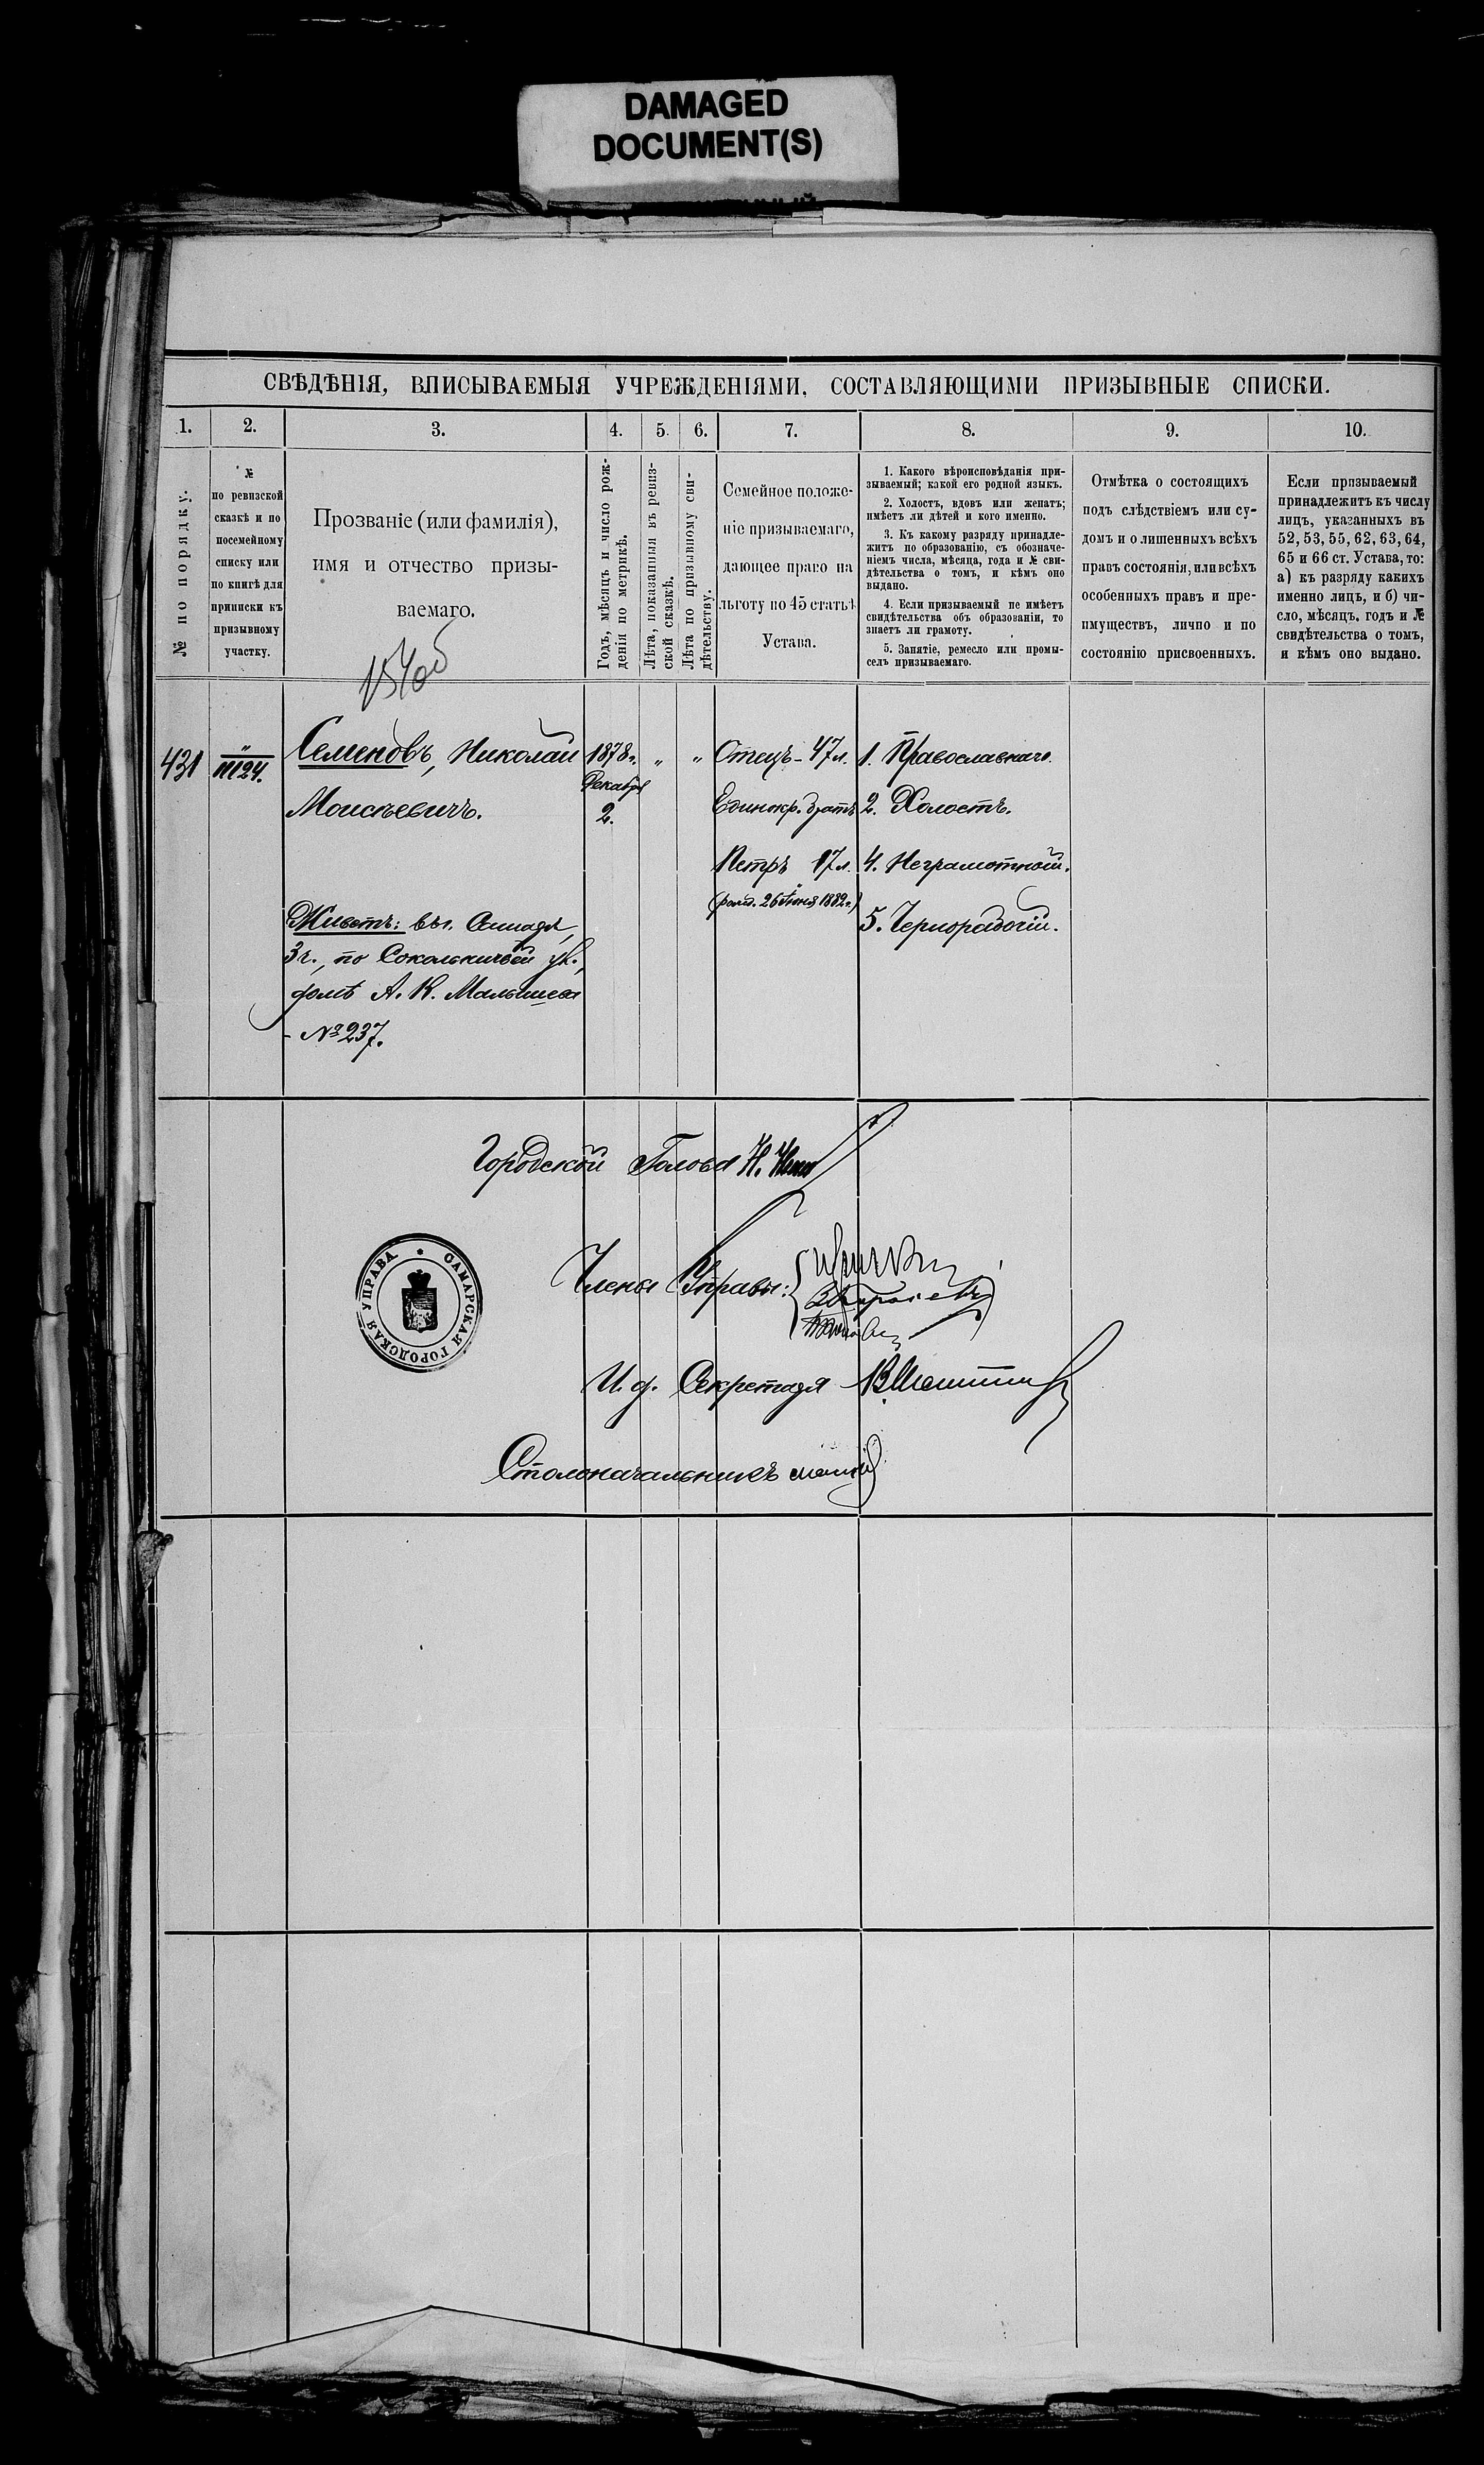 DAMAGED
DOCUMENT(S)
СВѢДѢНІЯ, ВПИСЫВАЕМЫЯ УЧРЕЖДЕНІЯМИ, СОСТАВЛЯЮЩИМИ ПРИЗЫВНЫЕ СПИСКИ.
1. 2. 3. 4. 5. 6. 7. 8. 9. 10.
№ по порядку.
№
по ревизской
сказкѣ и по
посемейному
списку или
по книгѣ для
приписки къ
призывному
участку.
Прозваніе (или фамилія),
имя и отчество призы-
ваемаго.
Годъ, мѣсяцъ и число рож-
денія по метрикѣ.
Лѣта, показанныя въ ревиз-
ской сказкѣ.
Лѣта по призывному сви-
дѣтельству.
Семейное положе-
ніе призываемаго,
дающее право на
льготу по 45 статьѣ
Устава.
1. Какого вѣроисповѣданія при-
зываемый; какой его родной языкъ.
2. Холостъ, вдовъ или женатъ;
имѣетъ ли дѣтей и кого именно.
3. Къ какому разряду принадле-
житъ по образованію, съ обозначе-
ніемъ числа, мѣсяца, года и № сви-
дѣтельства о томъ, и кѣмъ оно
выдано.
4. Если призываемый не имѣетъ
свидѣтельства объ образованіи, то
знаетъ ли грамоту.
5. Занятіе, ремесло или промы-
селъ призываемаго.
Отмѣтка о состоящихъ
подъ слѣдствіемъ или су-
домъ и о лишенныхъ всѣхъ
правъ состоянія, или всѣхъ
особенныхъ правъ и пре-
имуществъ, лично и по
состоянію присвоенныхъ.
Если призываемый
принадлежитъ къ числу
лицъ, указанныхъ въ
52, 53, 55, 62, 63, 64,
65 и 66 ст. Устава, то:
а) къ разряду какихъ
именно лицъ, и б) чи-
сло, мѣсяцъ, годъ и №
свидѣтельства о томъ,
и кѣмъ оно выдано.
431
"
1124.
Семеновъ, Николай
Моисѣевичъ.
Живетъ: въ г. Самарѣ,
3 ч., по Сокольничьей ул.,
домѣ А. К. Малышева
- № 237.
1878 г.
Декабря
2.
" "
Отецъ - 47 л.
Единокр. братъ
Петръ 17 л.
(рожд. 26 Іюня 1882 г.)
1. Православнаго.
2. Холостъ.
4. Неграмотной.
5. Чернорабочій.
Городской Голова
Члены Управы:
САМАРСКАЯ ГОРОДСКАЯ УПРАВА
И. д. Секретаря
Столоначальникъ